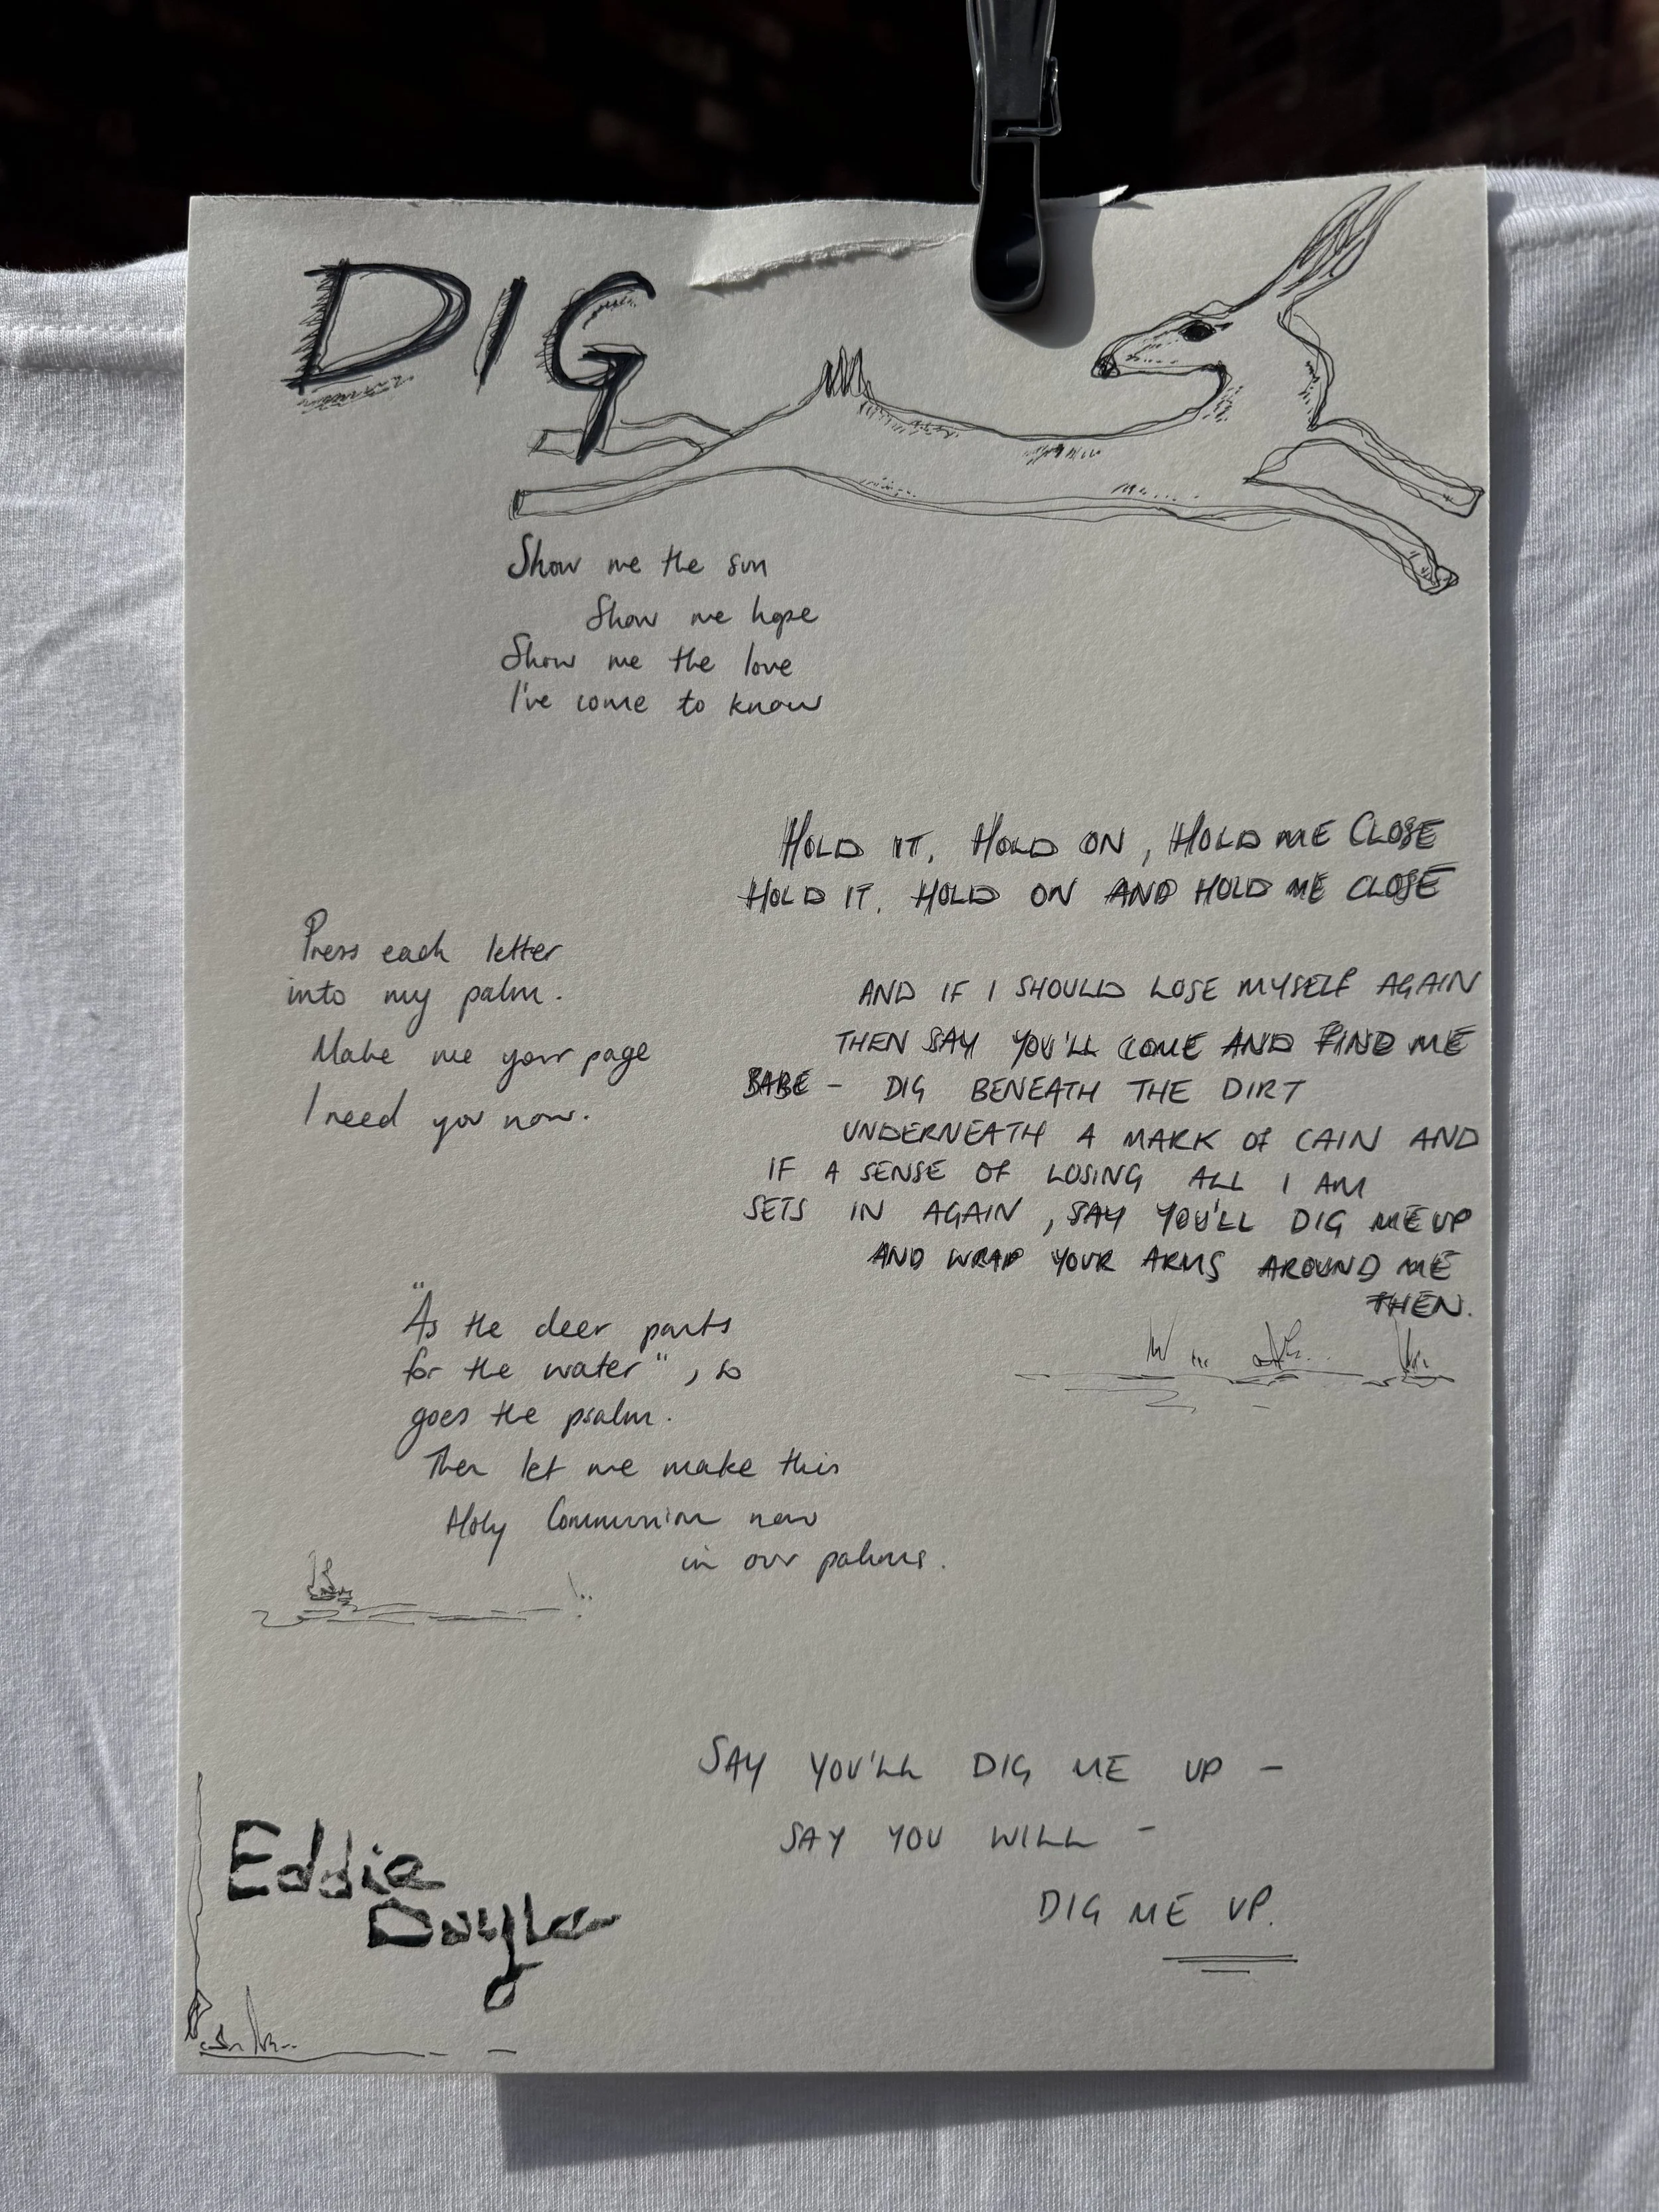 DIG
Show me the sun
Show me hope
Show me the love
I've come to know
HOLD IT, HOLD ON, HOLD ME CLOSE
HOLD IT, HOLD ON AND HOLD ME CLOSE
Press each letter
into my palm.
Make me your page
I need you now.
AND IF I SHOULD LOSE MYSELF AGAIN
THEN SAY YOU'LL COME AND FIND ME
BABE - DIG BENEATH THE DIRT
UNDERNEATH A MARK OF CAIN AND
IF A SENSE OF LOSING ALL I AM
SETS IN AGAIN, SAY YOU'LL DIG ME UP
AND WRAP YOUR ARMS AROUND ME
THEN.
"As the deer pants
for the water", so
goes the psalm.
Then let me make this
Holy Communion now
in our palms.
SAY YOU'LL DIG ME UP -
SAY YOU WILL -
DIG ME UP.
Eddie
Doyle